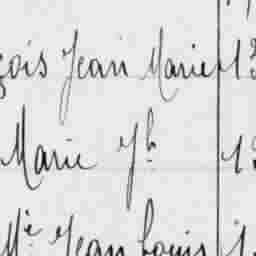 çois Jean Marie 13
Marie Jh 13
Mie Jean Louis 1